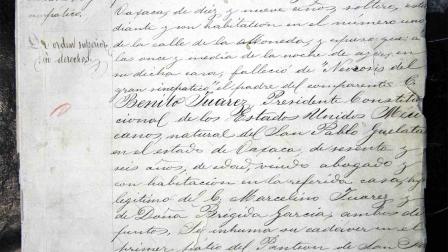 simpatico.
De orden superior
sin derechos.
Oaxaca, de diez y nueve años, soltero, estu
diante y con habitacion en el numero uno
de la calle de la Moneda, y expuso: que a
las once y media de la noche de ayer, en
su dicha casa, falleció de "Neurosis del
gran simpatico" el padre del compareciente C.
Benito Juarez, Presidente Constitu
cional de los Estados Unidos Mexi
canos, natural de San Pablo Guelatao
en el estado de Oaxaca, de sesenta y
seis años, de edad, viudo abogado y
con habitacion en la referida casa, hijo
legitimo del C. Marcelino Juarez
y de Doña Brigida Garcia, ambos di
funtos. Se inhuma su cadaver en el
primer patio del Panteon de San